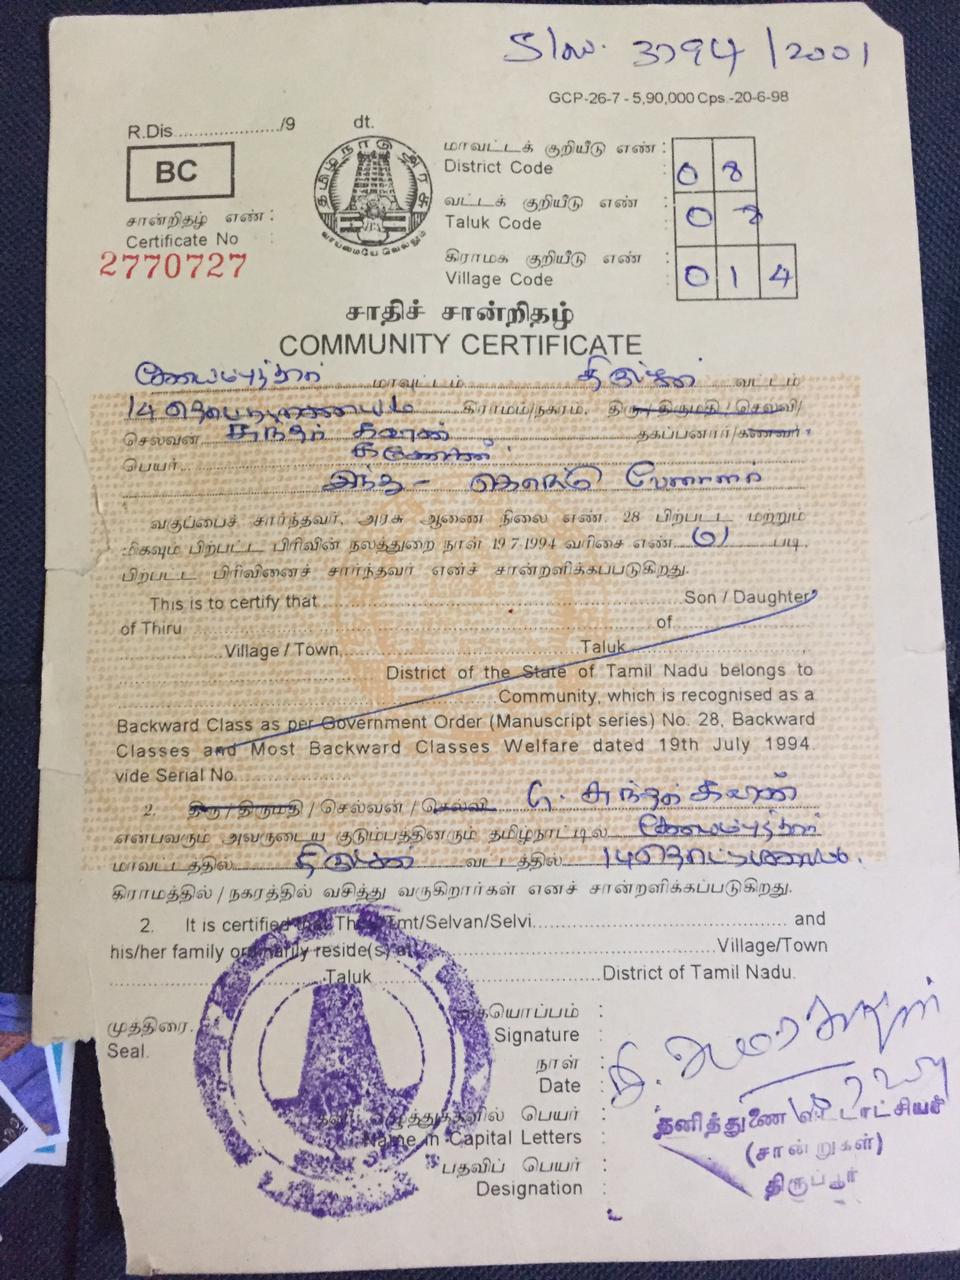 S/w. 3794/2001
GCP-26-7 - 5,90,000 Cps.-20-6-98
R.Dis...................../9 dt.
BC
தமிழ்நாடு அரசு
வாய்மையே வெல்லும்
மாவட்டக் குறியீடு எண் :
District Code : 08
வட்டக் குறியீடு எண் :
Taluk Code : 02
கிராமக் குறியீடு எண் :
Village Code : 014
சான்றிதழ் எண் :
Certificate No :
2770727
சாதிச் சான்றிதழ்
COMMUNITY CERTIFICATE
கோயம்புத்தூர் மாவட்டம் திருப்பூர் வட்டம்
14 கிராமம்/நகரம், திரு/திருமதி/செல்வி/
செலவன் தகப்பனார்/கணவர்
பெயர் கணேசன்
இந்து - கொங்கு வேளாளர்
வகுப்பைச் சார்ந்தவர். அரசு ஆணை நிலை எண். 28 பிற்பட்ட மற்றும்
மிகவும் பிற்பட்ட பிரிவின் நலத்துறை நாள் 19.7.1994 வரிசை எண். படி,
பிற்பட்ட பிரிவினைச் சார்ந்தவர் எனச் சான்றளிக்கப்படுகிறது.
This is to certify that Son / Daughter
of Thiru of
Village / Town, Taluk
District of the State of Tamil Nadu belongs to
Community, which is recognised as a
Backward Class as per Government Order (Manuscript series) No. 28, Backward
Classes and Most Backward Classes Welfare dated 19th July 1994.
vide Serial No.
2. திரு / திருமதி / செல்வன் / செல்வி G.
என்பவரும் அவருடைய குடும்பத்தினரும் தமிழ்நாட்டில் கோயம்புத்தூர்
மாவட்டத்தில் திருப்பூர் வட்டத்தில் 14
கிராமத்தில் / நகரத்தில் வசித்து வருகிறார்கள் எனச் சான்றளிக்கப்படுகிறது.
2. It is certified that Thiru/Tmt/Selvan/Selvi and
his/her family ordinarily reside(s) at Village/Town
Taluk District of Tamil Nadu.
முத்திரை.
Seal.
கையொப்பம் :
Signature :
நாள் :
Date :
தனி எழுத்துக்களில் பெயர் :
Name in Capital Letters :
பதவிப் பெயர் :
Designation :
தனித்துணை வட்டாட்சியர்
(சான்றுகள்)
திருப்பூர்